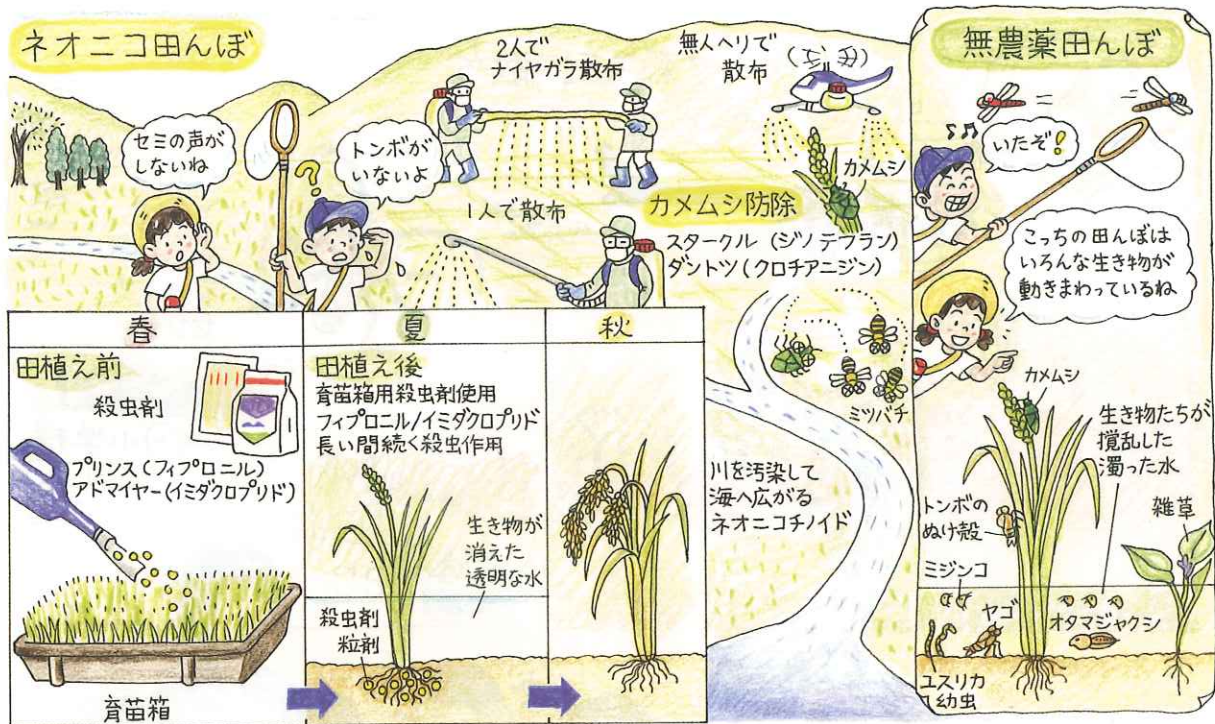 ネオニコ田んぼ
セミの声が
しないね
トンボが
いないよ
2人で
ナイヤガラ散布
無人ヘリで
散布
1人で散布
カメムシ
カメムシ防除
スタークル (ジノテフラン)
ダントツ(クロチアニジン)
ミツバチ
川を汚染して
海へ広がる
ネオニコチノイド
春
田植え前
殺虫剤
プリンス(フィプロニル)
アドマイヤー(イミダクロプリド)
育苗箱
夏
田植え後
育苗箱用殺虫剤使用
フィプロニル/イミダクロプリド
長い間続く殺虫作用
生き物が
消えた
透明な水
殺虫剤
粒剤
秋
無農薬田んぼ
いたぞ!
こっちの田んぼは
いろんな生き物が
動きまわっているね
カメムシ
生き物たちが
撹乱した
濁った水
トンボの
ぬけ殻
雑草
ミジンコ
ヤゴ
オタマジャクシ
ユスリカ
幼虫